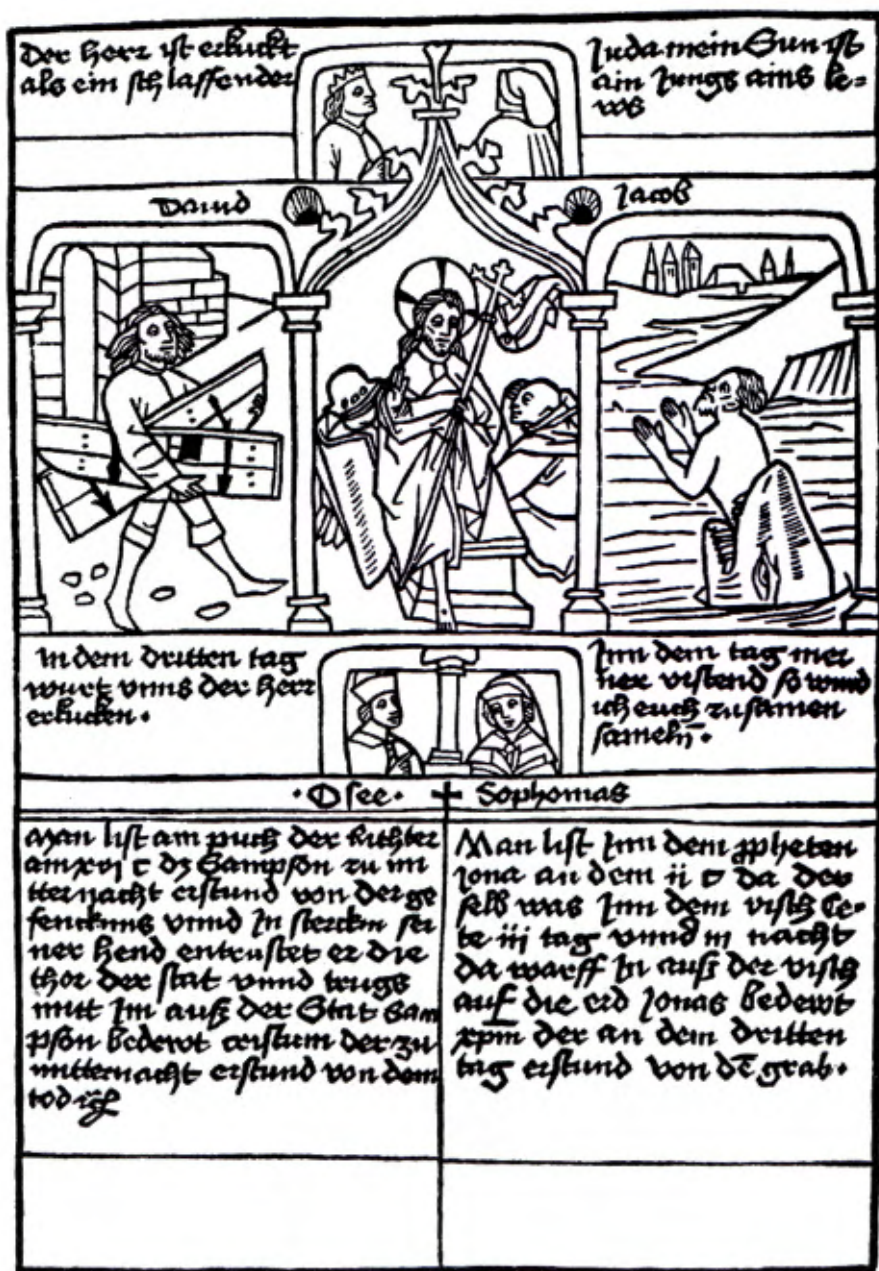 Der herr ist erkuckt
als ein schlaffender
Juda mein Sun ist
ain Jungs ains le=
ws
Dauid
Jacob
In dem dritten tag
wurt vnns der herr
erkucken.
Inn dem tag mei
ner vrstend so wird
ich euch zusamen
sameln̄.
·Osee·
Sophonias
Man list am puch der Richter
am xvj c dz Sampson zu mi
tternacht erstund von der ge
fencknus vnnd In sterckin sei
ner hend entrustet er die
thor der stat vnnd trugs
mitt Im auß der Stat Sam
pson bedewt cristum der zu
mitternacht erstund von dem
tod
Man list Inn dem ppheten
Jona an dem ii c da der
selb was Inn dem visch Ce=
te iij tag vnnd iij nacht
da warff In auß der visch
auf die erd Jonas bedewt
xpm̄ der an dem dritten
tag erstund von dē grab.